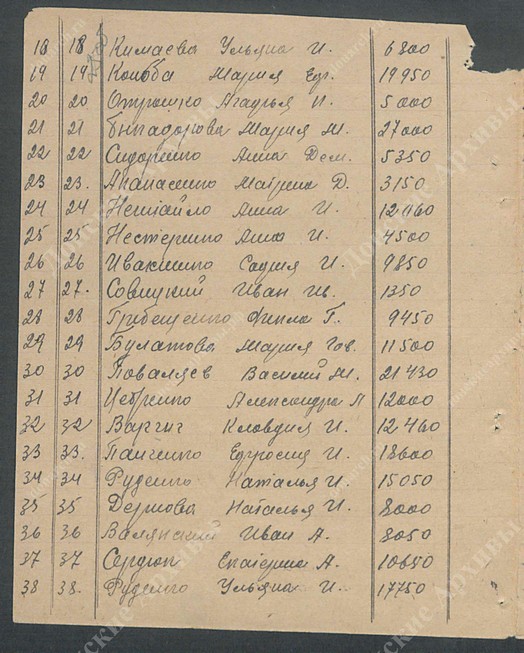 18 18 Кимаева Ульяна И. 6800
19 19 Коноба Мария Егр. 19950
20 20 Отрошко Агафья И. 5000
21 21 Мария М. 27000
22 22 Сидоренко Анна Дем. 5350
23 23. Апанасенко Матрена Д. 3150
24 24 Нешайло Анна И. 12060
25 25 Нестеренко Анна И. 4500
26 26 Ивакиенко София И. 9850
27 27. Совицкий Иван Ив. 1350
28 28 Гребещенко Фекла Г. 9450
29 29 Булатова Мария Гав. 11500
30 30 Поваляев Василий М. 21430
31 31 Цебренко Александра Л 12000
32 32 Варчич Клавдия И. 12460
33 33. Панченко Ефросиния И. 18600
34 34 Руденко Наталья И. 15050
35 35 Дернова Наталья И. 8000
36 36 Валянский Иван А. 8050
37 37 Сердюк Екатерина А. 10650
38 38. Руденко Ульяна И. 17750